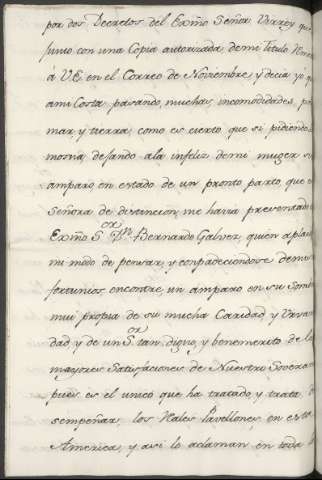 por dos Decretos del Exmo Señor Virrey que
junto con una Copia autorizada de mi Titulo
á V.E. en el Correo de Noviembre, y decia yo q
ami Costa pasando, muchas, incomodidades, p
mar, y tierra, como es cierto, que si pidiendo
mosna, dejando ala infeliz demi muger s
amparo, en estado de un pronto parto, que e
señora de distincion, me havia presentado
Exmo Sor Dn Bernardo Galvez, quien aplau
mi modo de pensar, y conpadeciendose demi
fortunios, encontre, un amparo en su Somb
mui propia de su mucha Caridad, y Urvan
dad, y de un Sor tan digno, y benemerito de l
mayores Satisfaciones de Nuestro Sovera
pues es el unico que ha tratado, y trata, d
sempeñar, los Rales Pavellones, en est
America, y asi lo aclaman en toda l